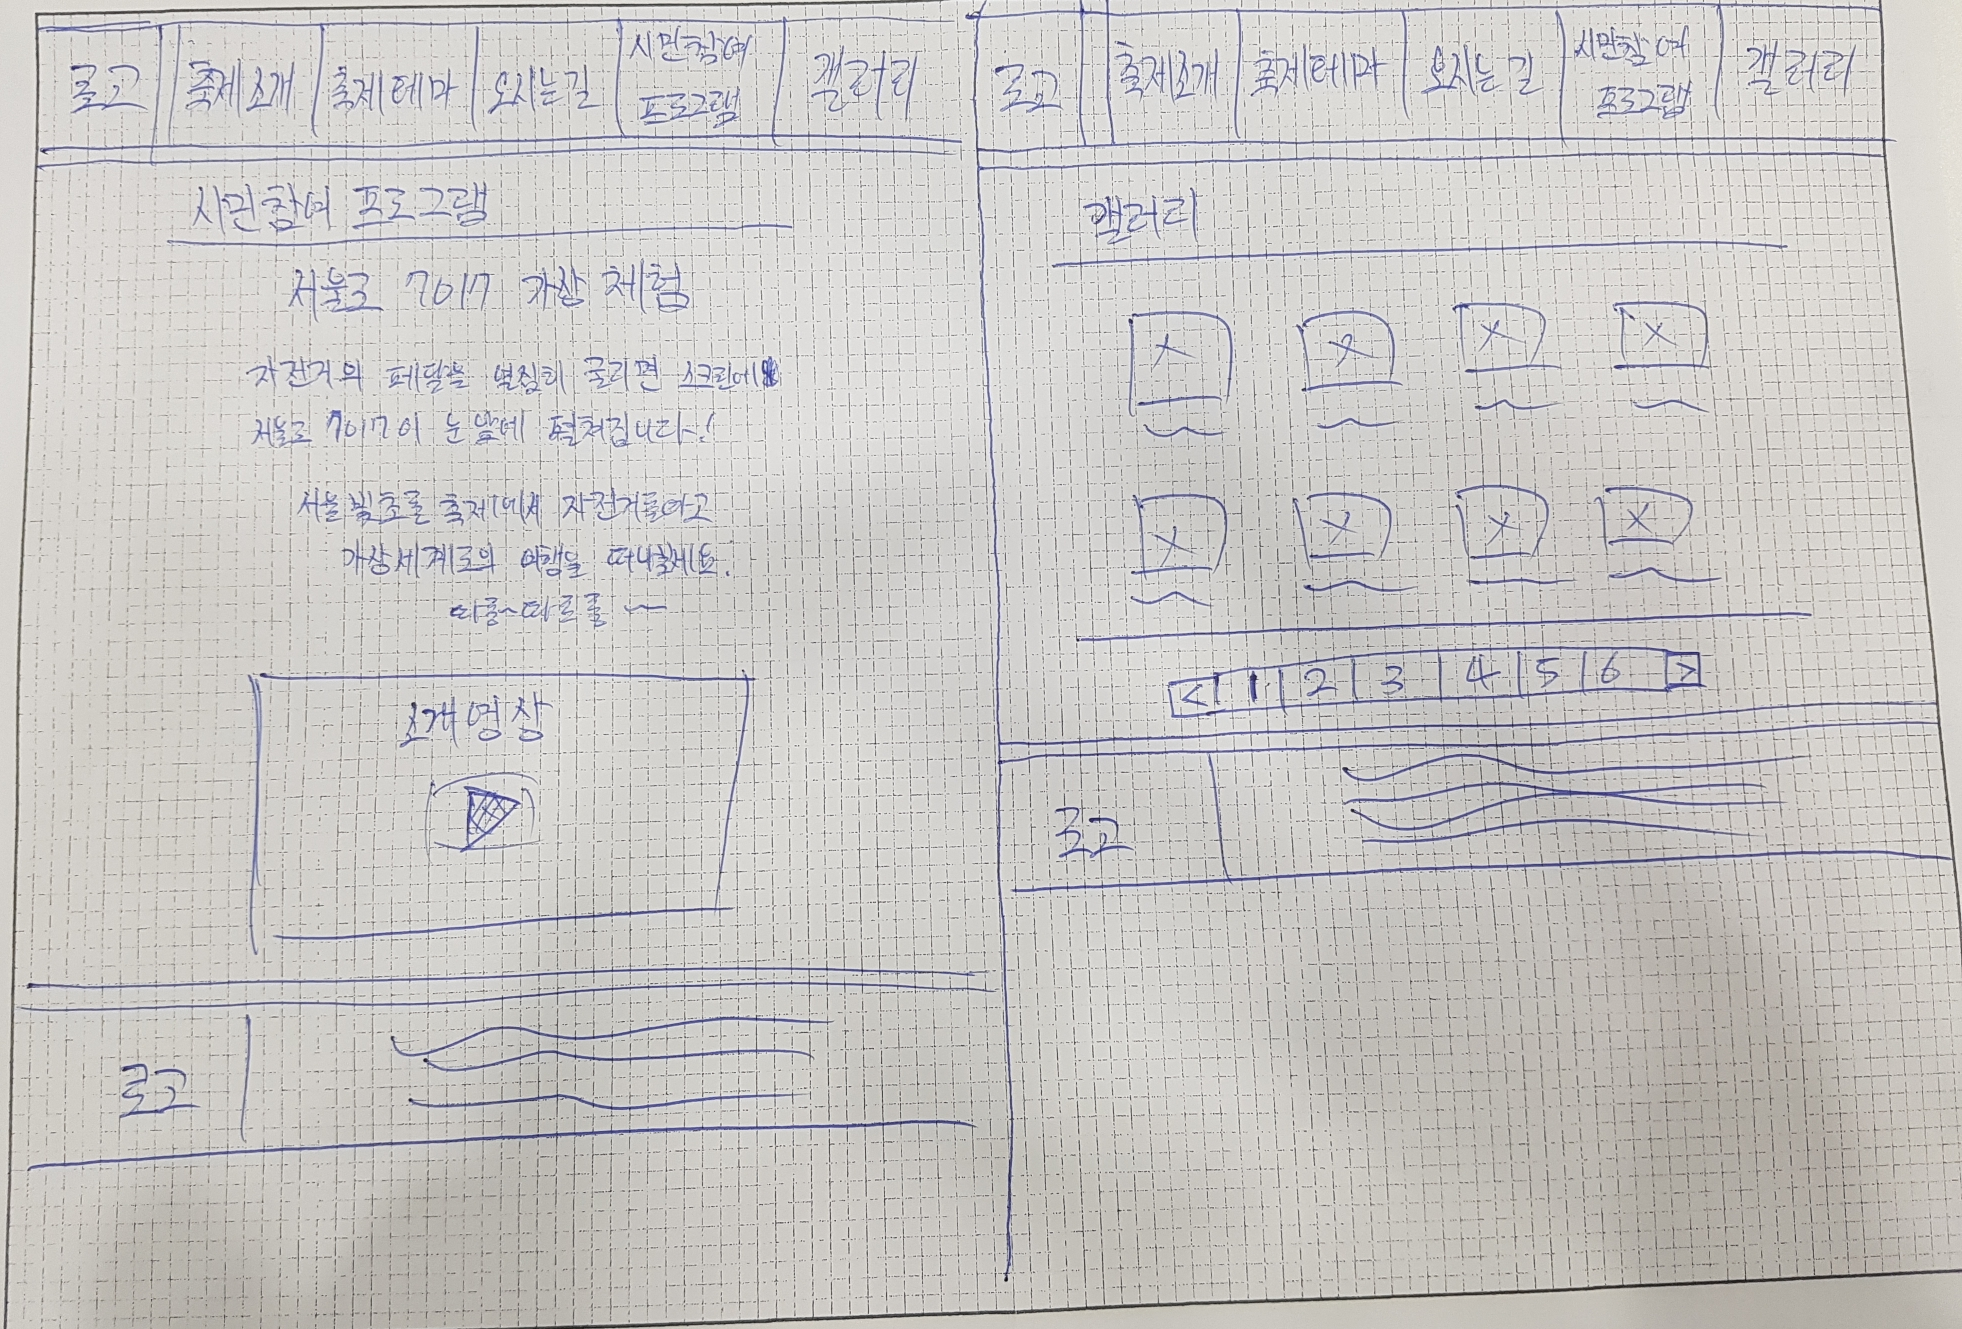 로고 축제소개 축제테마 오시는길 시민참여 프로그램 갤러리
시민참여 프로그램
서울로 7017 가상 체험
자전거의 페달을 열심히 굴리면 스크린에
서울로 7017이 눈앞에 펼쳐집니다~!
서울빛초롱축제에서 자전거를타고
가상세계로의 여행을 떠나보세요.
따릉~따르릉~
소개영상
로고
로고 축제소개 축제테마 오시는길 시민참여 프로그램 갤러리
갤러리
< 1 2 3 4 5 6 >
로고